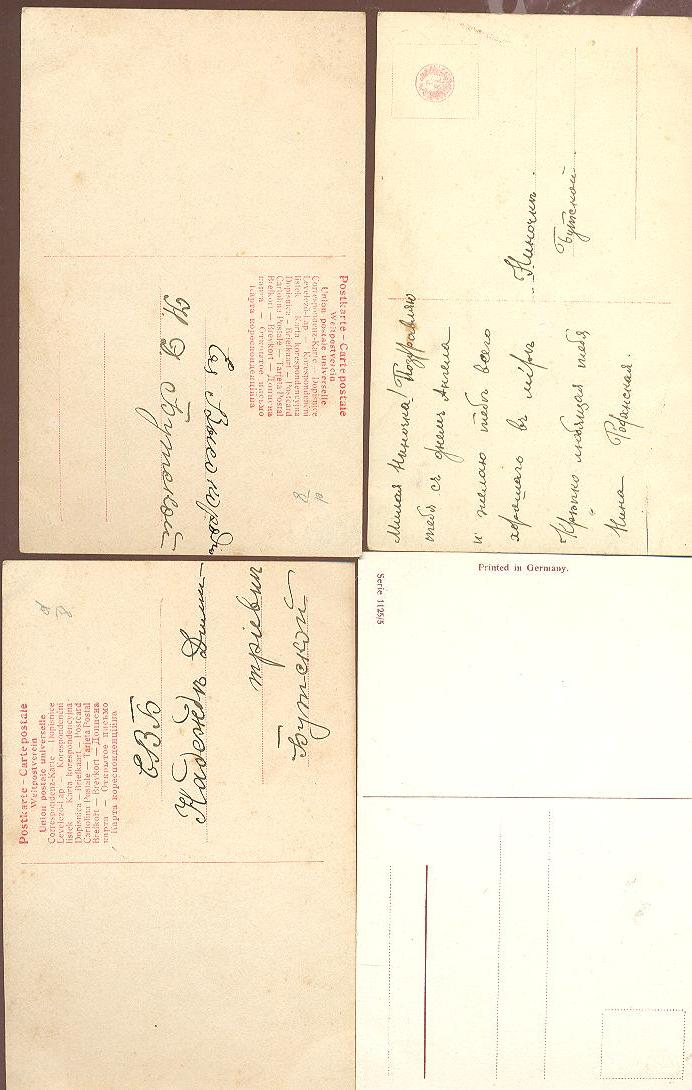 Postkarte – Carte postale
Weltpostverein
Union postale universelle
Correspondenz-Karte – Dopisnice
Levelező-Lap — Korespondenční
lístek — Karta korespondencyjna
Dopisnica — Briefkaart — Postcard
Cartolina Postale — Tarjeta Postal
Brefkort — Brevkort — Дописна
карта — Открытое письмо
Карта кореспонденційна
Ея Высокородію
Н Д Бутской
Милая Ниночка! Поздравляю
тебя съ днемъ Ангела
и желаю тебѣ всего
хорошаго въ мірѣ
Крѣпко любящая тебя
Нина
Ниночкѣ
Бутской.
Postkarte – Carte postale
Weltpostverein
Union postale universelle
Correspondenz-Karte – Dopisnice
Levelező-Lap — Korespondenční
lístek — Karta korespondencyjna
Dopisnica — Briefkaart — Postcard
Cartolina Postale — Tarjeta Postal
Brefkort — Brevkort — Дописна
карта — Открытое письмо
Карта кореспонденційна
ЕВБ
Надеждѣ Дими-
тріевнѣ
Бутской
Printed in Germany.
Serie 1125/5